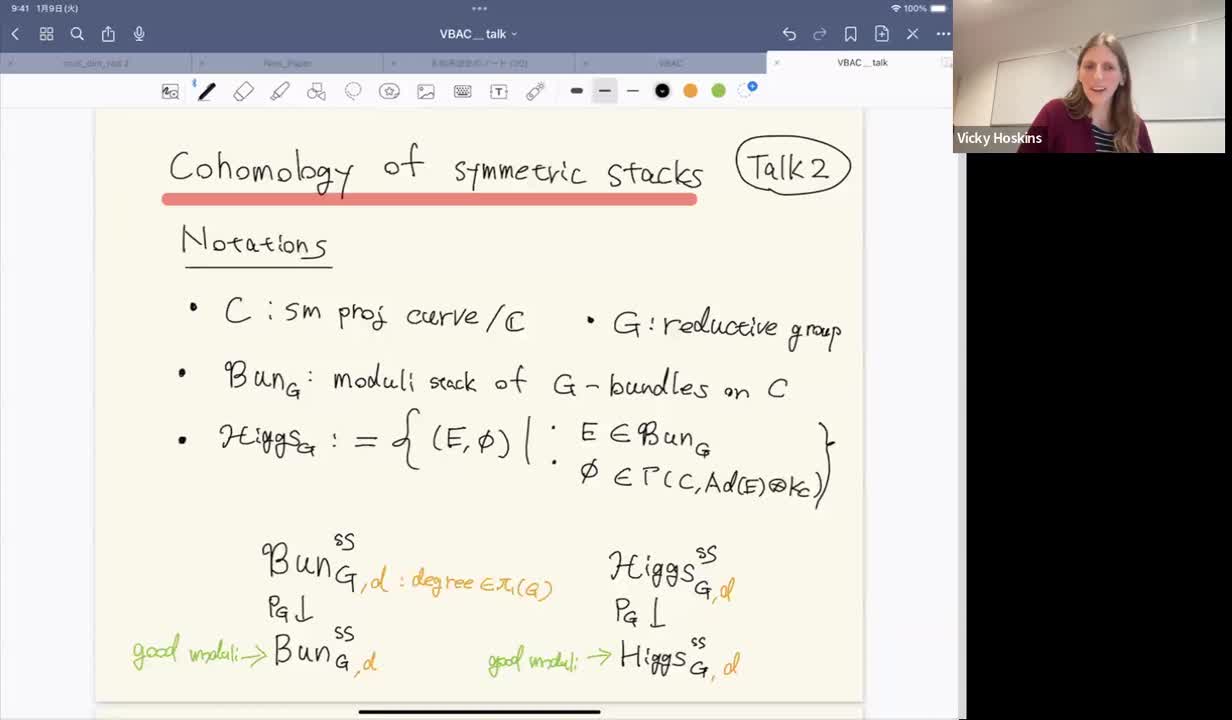 9:41 1月9日(火)
100%
VBAC__talk
VBAC
VBAC__talk
Vicky Hoskins
Cohomology of symmetric stacks Talk 2
Notations
• C : sm proj curve/ℂ • G : reductive group
• Bun_G : moduli stack of G-bundles on C
• Higgs_G := { (E, φ) | · E ∈ Bun_G
· φ ∈ Γ(C, Ad(E)⊗K_C) }
Bun^ss_G,d : degree ∈ π₁(G) Higgs^ss_G,d
P_G ↓ P_G ↓
good moduli → Bun^ss_G,d good moduli → Higgs^ss_G,d